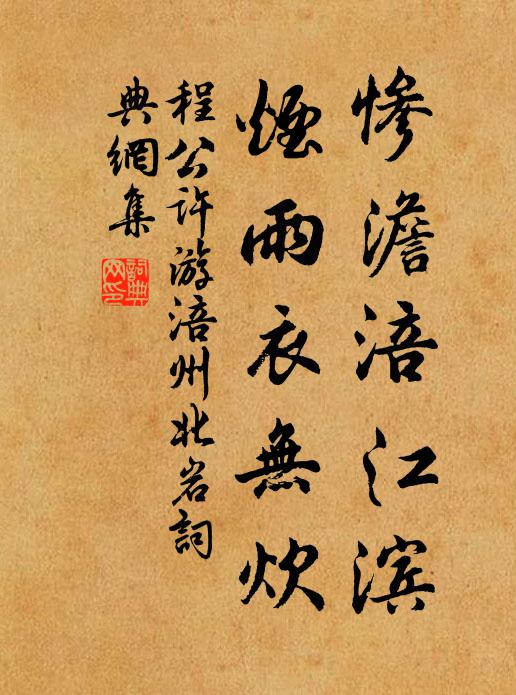 惨澹涪江滨
煙雨衣無炊
程公许游涪州北岩詞
典網集
詞典网印